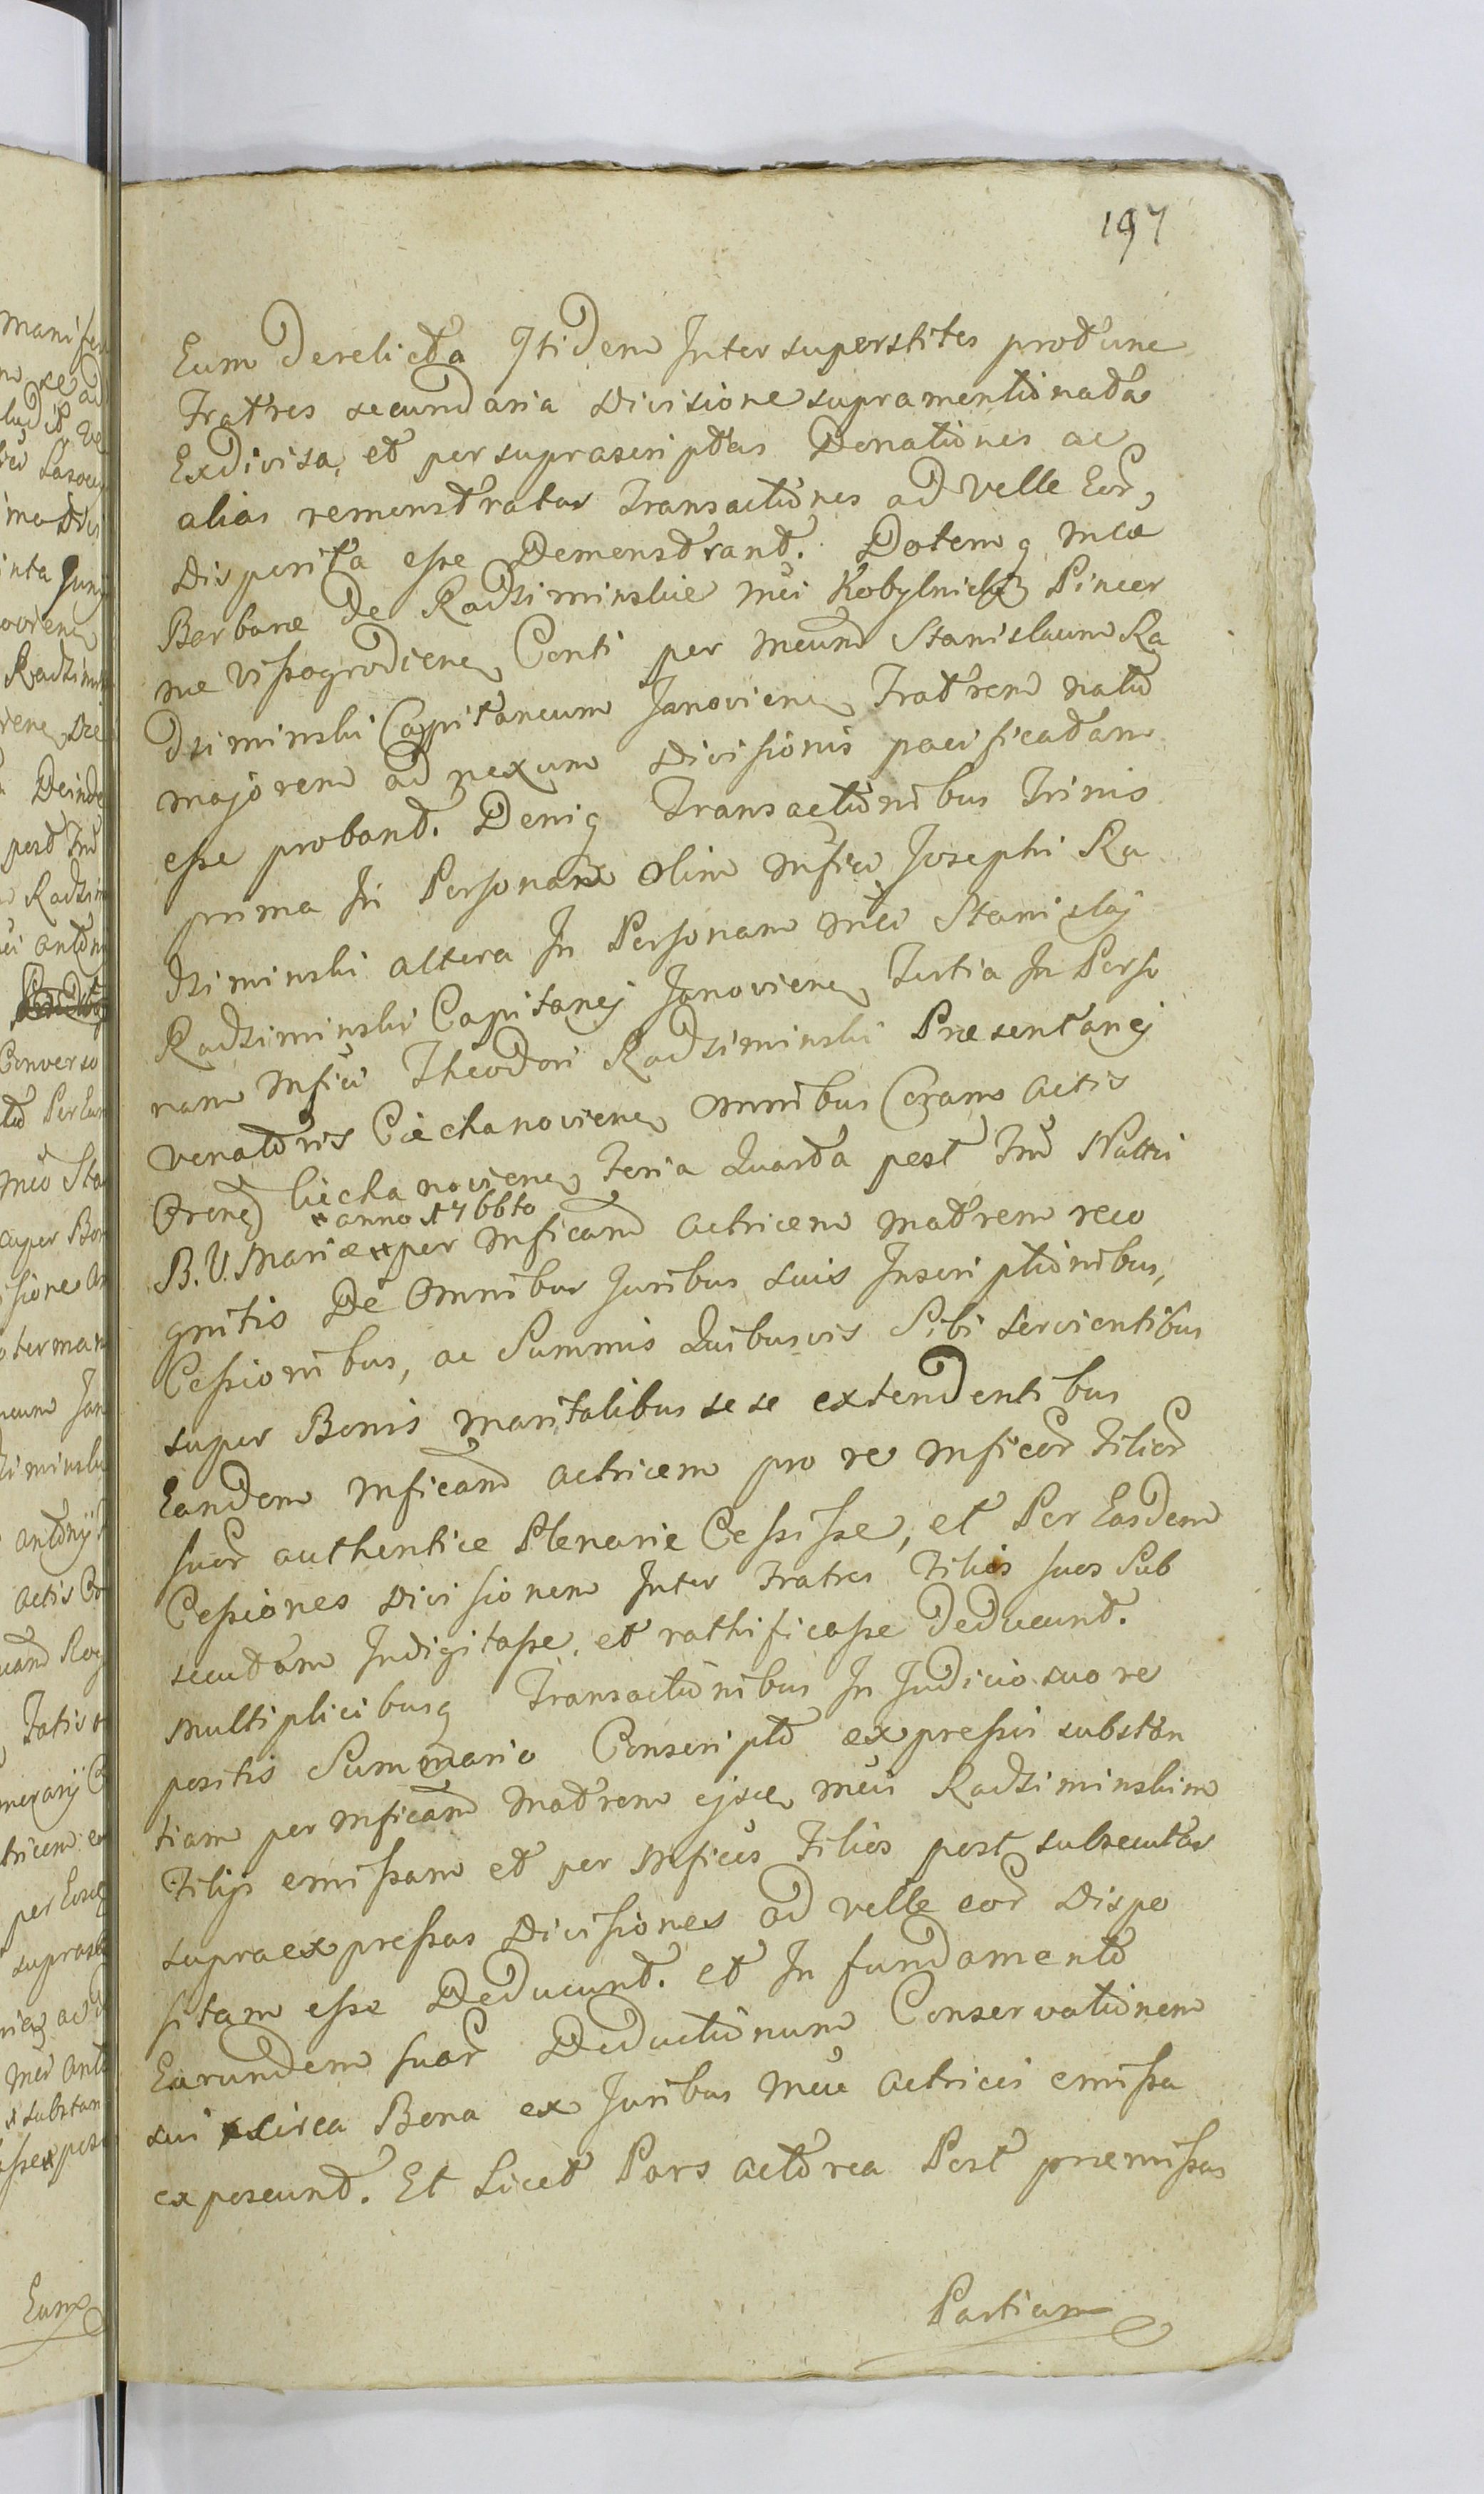 197
Eum Derelicta Itidem Inter superstites protunc
Fratres secundaria Divisione supramentionata
Exdivisa, et per suprascriptas Donationes ac
alias remonstratas Transactiones ad Velle Eor,
Disposita esse Demonstrant. Dotemq Mcæ
Barbaræ De Radziminskie Mci Kobylnicki Pincer
næ Vissogrodienẽ Conti per Mcum Stanislaum Ra
dziminski Capitaneum Janovienẽ Fratrem natu
majorem ad nexum Divisionis pacificatam
esse probant. Deniq Transactionibus Trinis
prima In Personam olim Mfici Josephi Ra
dziminski altera In Personam Mci Stanislaj
Radziminski Capitanej Janovienẽ Tertia In Perso
nam Mfici Theodori Radziminski Præsentanej
venatoris Ciechanovienẽ omnibus Coram actis
Crenẽ Ciechanovienẽ Feria Quarta post Fm Nattis
* anno 1766to
B. V. Mariæ * per Mficam actricem matrem reco
gnitis De Omnibus Juribus suis Inscriptionibus,
Cessionibus, ac Summis Quibusvis Sibi servientibus
super Bonis maritalibus sese extendentibus
Eandem Mficam actricem pro re Mficor Filior
suor authentice Plenarie Cessisse, et Per Easdem
Cessiones Divisionem Inter Fratres Filios suos Sub
secutam Indigitasse, et rathificasse Deducunt.
Multiplicibusq Transactionibus In Judicio suo re
positis Summario Conscripto expressis substan
tiam per Mficam Matrem ejsce Mcis Radziminskim
Filijs emissam et per Mficos Filios post subsecutas
supraexpressas Divisiones ad velle eor Dispo
sitam esse Deducunt. et In fundamento
Earundem suar Deductionum Conservationem
sui circa Bona ex Juribus Mcæ actricis emissa
exposcunt. Et Licet Pars actorea Post præmissas
Partium
Eum